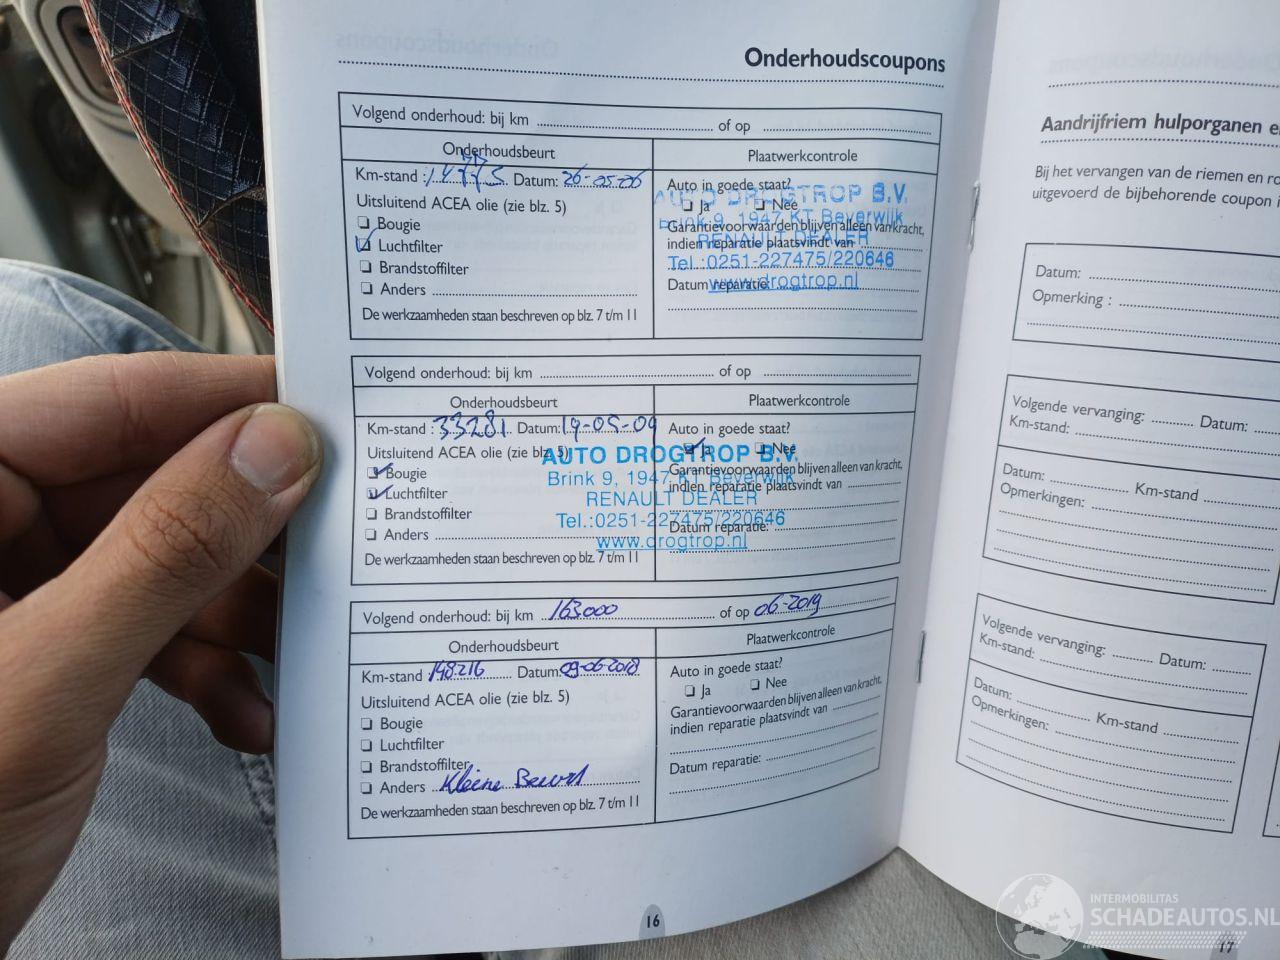 Onderhoudscoupons
Volgend onderhoud: bij km of op
Onderhoudsbeurt Plaatwerkcontrole
Km-stand : Datum: 26-05-06
Uitsluitend ACEA olie (zie blz. 5)
Bougie
Luchtfilter
Brandstoffilter
Anders
De werkzaamheden staan beschreven op blz. 7 t/m 11
Auto in goede staat?
Ja Nee
Garantievoorwaarden blijven alleen van kracht,
indien reparatie plaatsvindt van
Datum reparatie:
AUTO DROGTROP B.V.
Brink 9, 1947 KT Beverwijk
RENAULT DEALER
Tel.:0251-227475/220646
www.drogtrop.nl
Volgend onderhoud: bij km of op
Onderhoudsbeurt Plaatwerkcontrole
Km-stand : 33281 Datum: 19-05-09
Uitsluitend ACEA olie (zie blz. 5)
Bougie
Luchtfilter
Brandstoffilter
Anders
De werkzaamheden staan beschreven op blz. 7 t/m 11
Auto in goede staat?
Ja Nee
Garantievoorwaarden blijven alleen van kracht,
indien reparatie plaatsvindt van
Datum reparatie:
AUTO DROGTROP B.V.
Brink 9, 1947 KT Beverwijk
RENAULT DEALER
Tel.:0251-227475/220646
www.drogtrop.nl
Volgend onderhoud: bij km 163000 of op 06-2019
Onderhoudsbeurt Plaatwerkcontrole
Km-stand 148216 Datum: 09-06-2018
Uitsluitend ACEA olie (zie blz. 5)
Bougie
Luchtfilter
Brandstoffilter
Anders Kleine Beurt
De werkzaamheden staan beschreven op blz. 7 t/m 11
Auto in goede staat?
Ja Nee
Garantievoorwaarden blijven alleen van kracht,
indien reparatie plaatsvindt van
Datum reparatie:
16
Aandrijfriem hulporganen
Bij het vervangen van de riemen en
uitgevoerd de bijbehorende coupon
Datum:
Opmerking :
Volgende vervanging: Datum:
Km-stand:
Datum: Km-stand
Opmerkingen:
Volgende vervanging: Datum:
Km-stand:
Datum: Km-stand
Opmerkingen:
17
INTERMOBILITAS
SCHADEAUTOS.NL